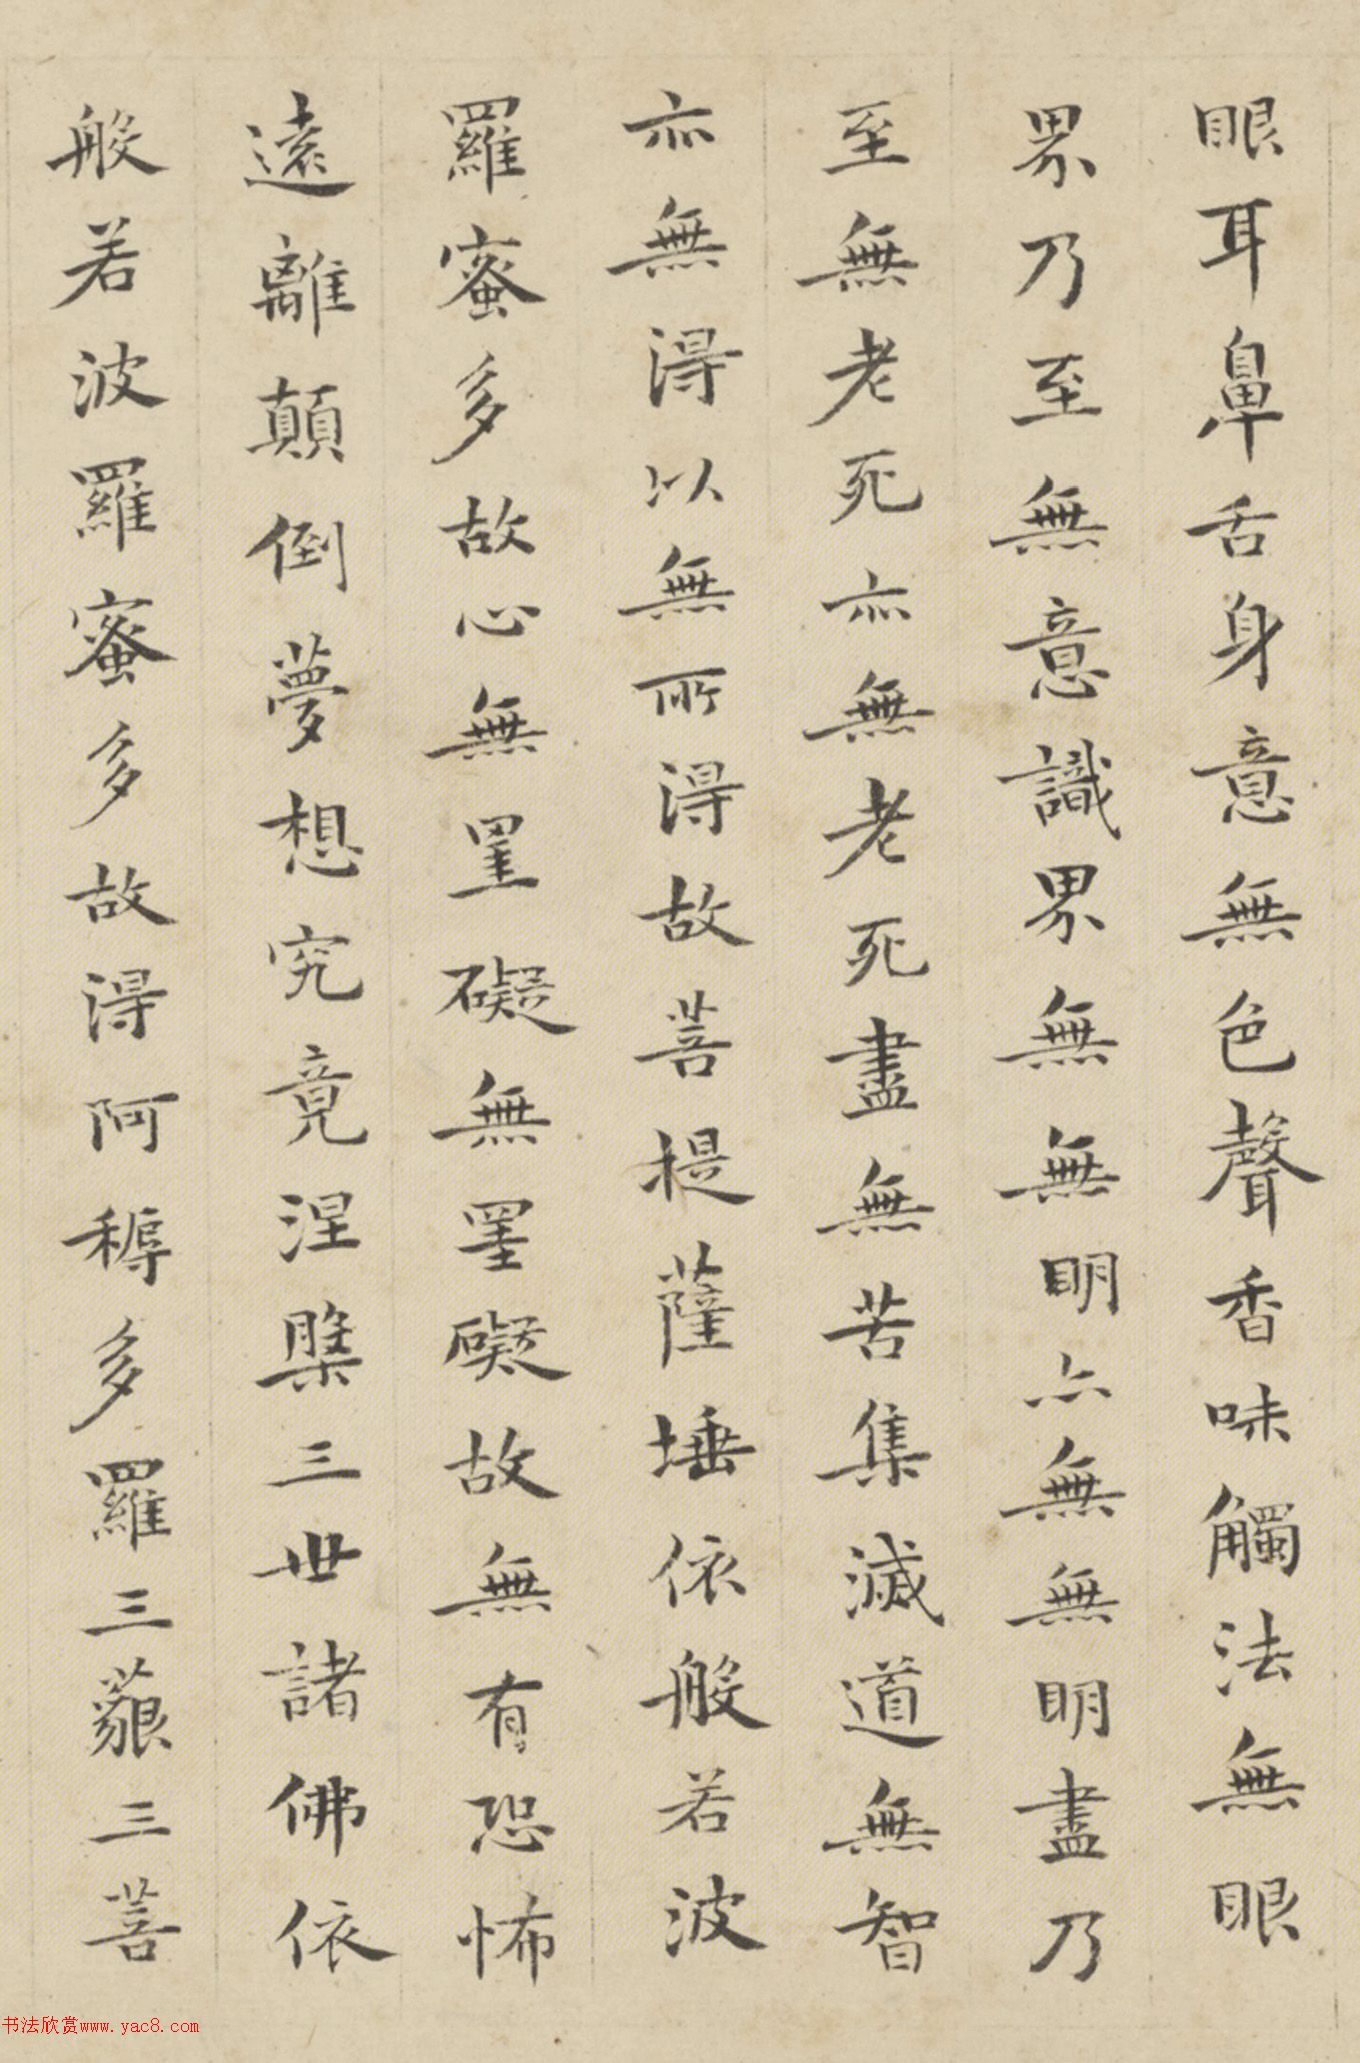 眼耳鼻舌身意無色聲香味觸法無眼
界乃至無意識界無無明亦無無明盡乃
至無老死亦無老死盡無苦集滅道無智
亦無得以無所得故菩提薩埵依般若波
羅蜜多故心無罣礙無罣礙故無有恐怖
遠離顛倒夢想究竟涅槃三世諸佛依
般若波羅蜜多故得阿耨多羅三藐三菩
书法欣赏www.yac8.com